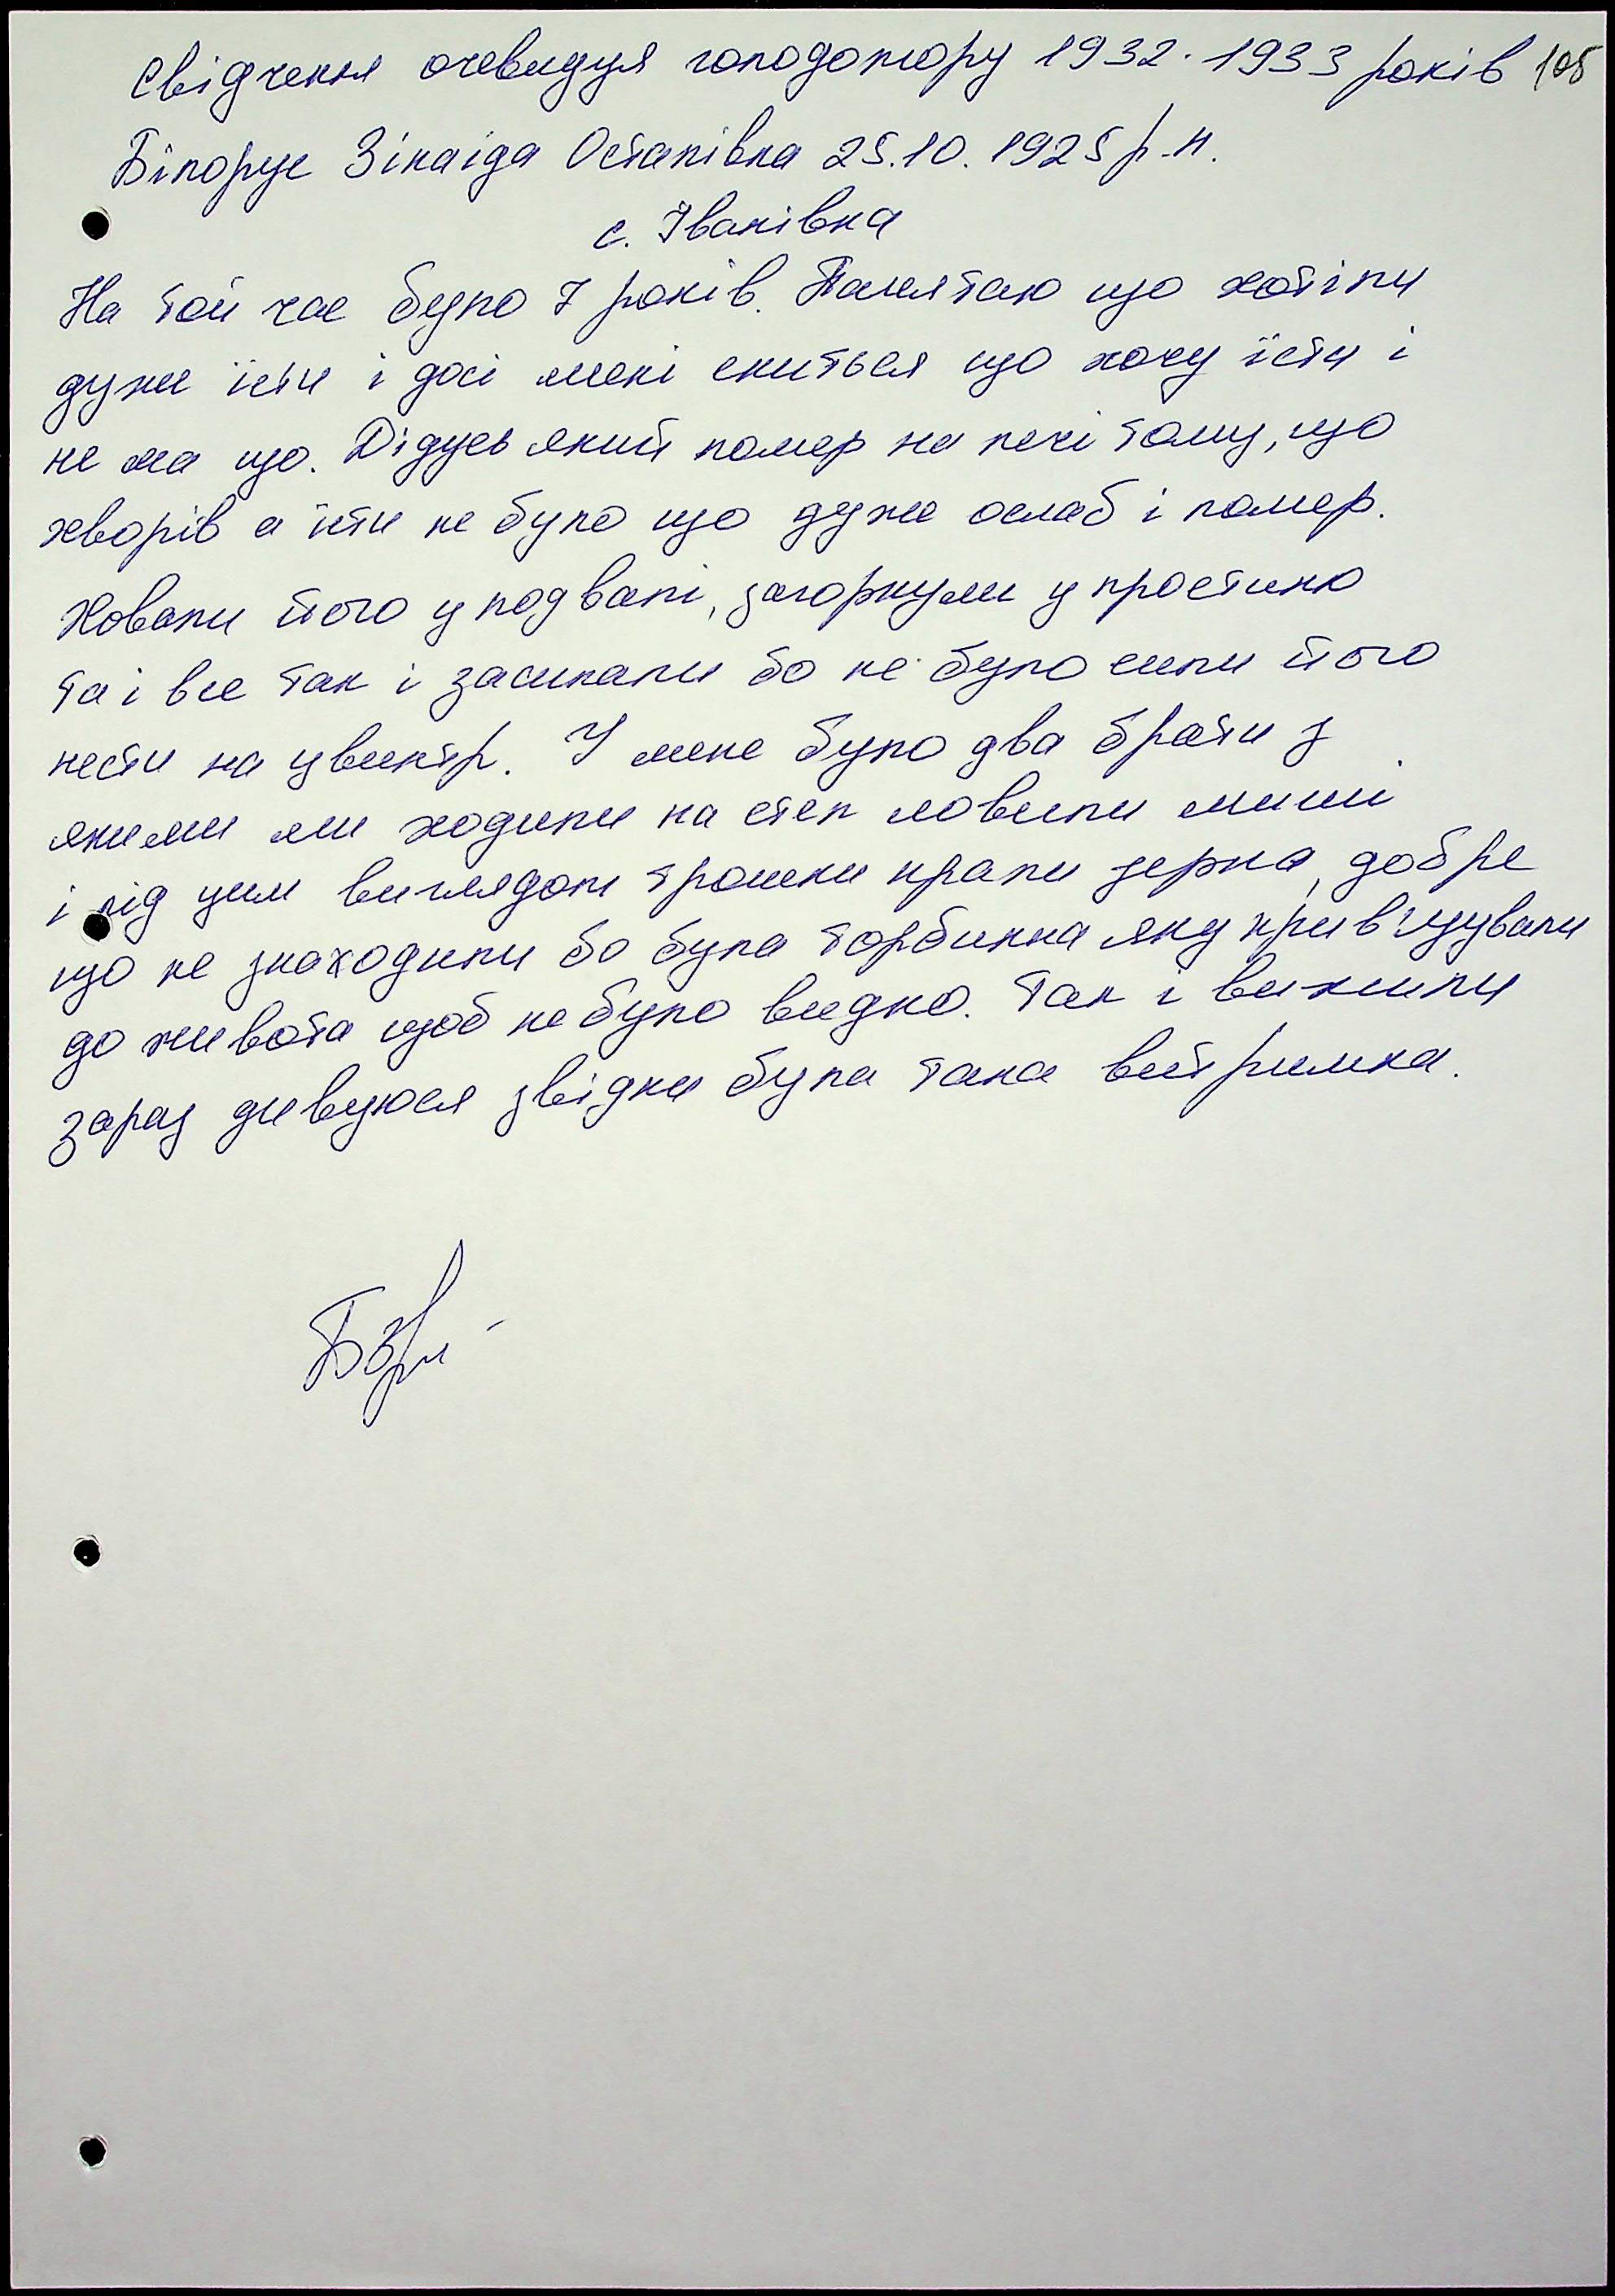 Свідчення очевидця голодомору 1932-1933 років 105
Білорус Зінаіда Остапівна 25.10.1925 р.н.
с. Іванівка
На той час було 7 років. Памлятаю що хотіли
дуже їсти і досі мені сниться що хочу їсти і
не ма що. Дідусь який помер на печі тому, що
хворів а їсти не було що дуже ослаб і помер.
Ховали його у подвалі, загорнули у простиню
та і все так і засипали бо не було сили його
нести на цвинтр. У мене було два брати з
якими ми ходили на степ ловили миші
і під цим виглядом трошки крали зерна, добре
що не знаходили бо була торбинка яку прив'язували
до живота щоб не було видно. Так і вижили
зараз дивуюся звідки була така витримка.